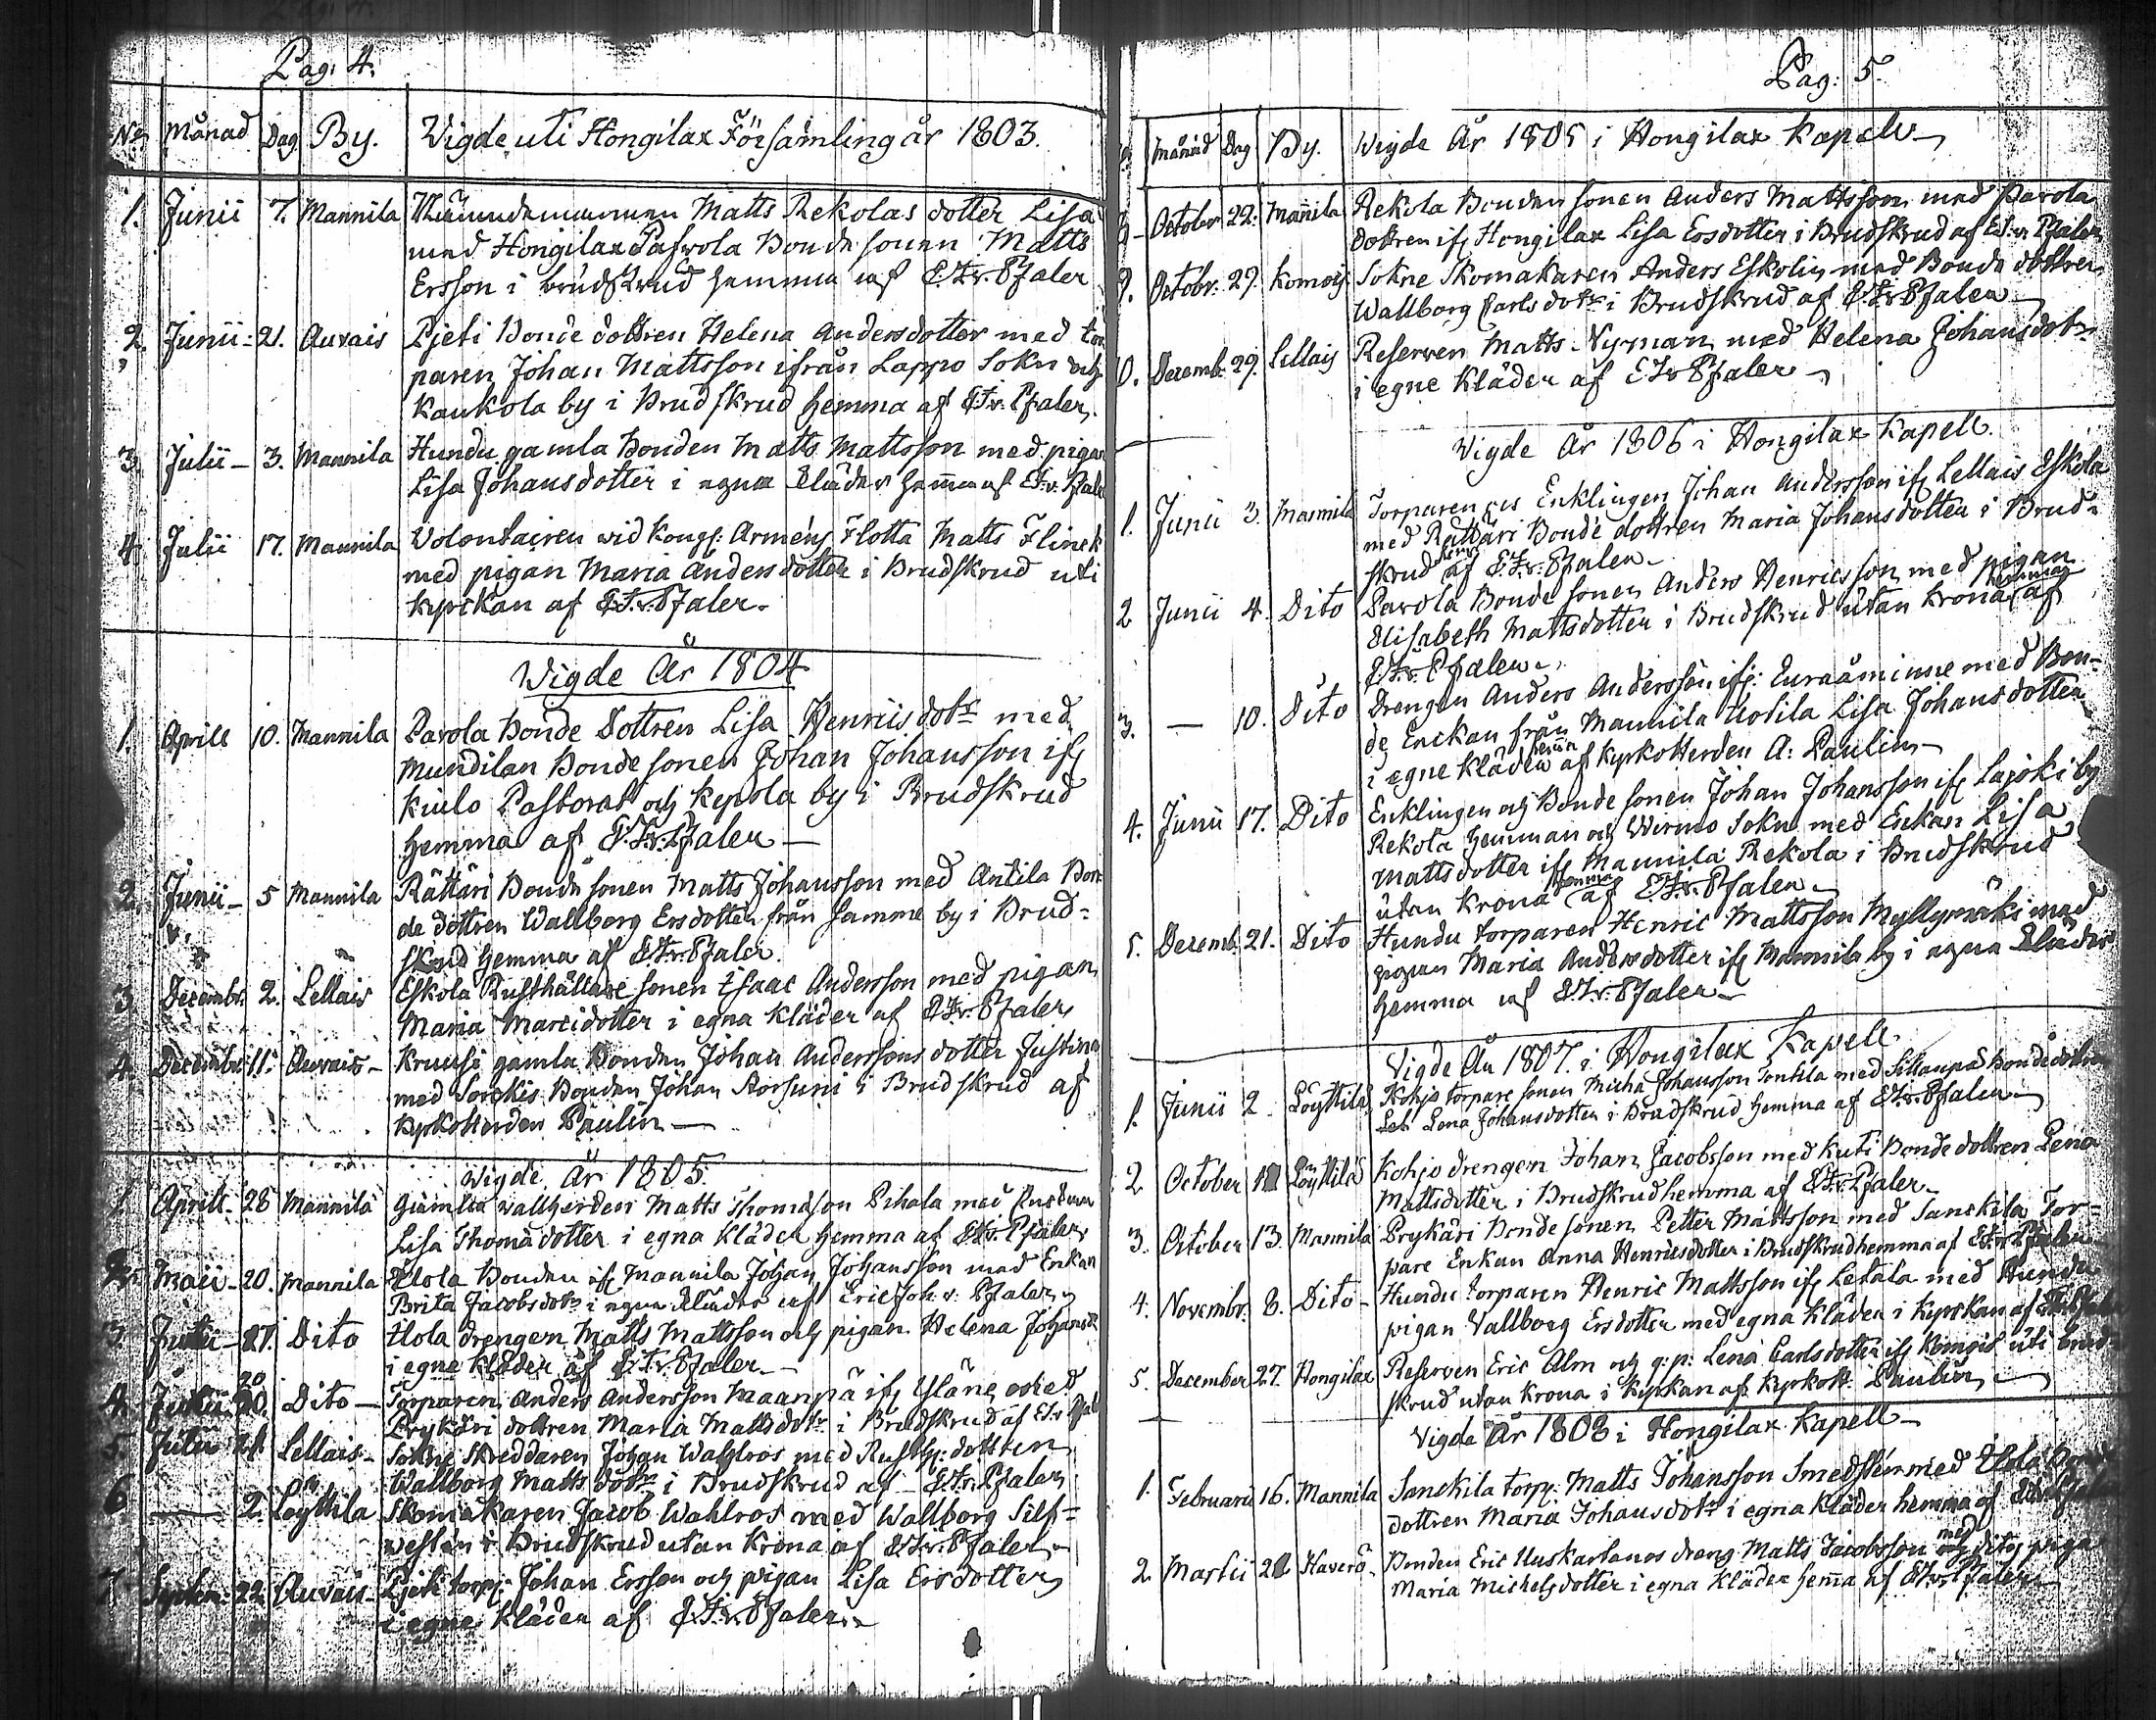 Pag. 4.
No Månad Dag By. Wigde uti Hongilax Församling år 1803.
1. Junii 7. Mannila Matts Rekolas dotter Lisa
med Hongilax Pafwola Bonde sonen Matts
Ersson i brudskrud hemma af E.J.v. Pfaler
2. Junii 21. Auvais Pjeti Bonde dottren Helena Andersdotter med tor
paren Johan Mattsson ifrån Lappo Sokn och
Kaukola by i Brudskrud hemma af E.J.v. Pfaler.
3. Julii 3. Mannila Hundu gamla Bonden Matts Mattsson med pigan
Lisa Johansdotter i egna kläder hemma af E.J.v. Pfaler
4 Julii 17. Mannila Volontairen vid Kongl: Arméns Flotta Matts Flinck
med pigan Maria Andersdotter i Brudskrud uti
kyrckan af E.J.v. Pfaler.
Wigde År 1804
1. Aprill 10. Mannila Pavola Bonde Dottren Lisa Henricsdotr med
Mundilan Bonde sonen Johan Johansson ifr
Kiulo Pastorat och Kepola by i Brudskrud
hemma af E.J.v. Pfaler
2. Junii 5 Mannila Rättäri Bonde sonen Matts Johansson med Antila Bon
de dottren Wallborg Ersdotter från samme by i Brud=
skrud hemma af E.J.v. Pfaler.
3 Decembr. 2. Lellais Eskola Rusthållare sonen Isaac Andersson med pigan
Maria Marcidotter i egna kläder af E.J.v. Pfaler
4. Decembr 11. Auvais Kruusi gamla Bonden Johan Anderssons dotter Justina
med Sorckis Bonden Johan i Brudskrud af
Kyrkoherden Paulin
Wigde år 1805.
1 Aprill 28 Mannila Gamla wallherden Matts Thomasson Pihala med Enckan
Lisa Thomadotter i egna kläder hemma af E.J.v. Pfaler
2. Maii 20. Mannila Ulola Bonden ifr Mannila Johan Johansson med Enkan
Brita Jacobsdotr i egna kläder af Eric Joh. v. Pfaler
3 27. Dito Ulola drengen Matts Mattsson och pigan Helena Johansdr
i egne kläder af E.J.v. Pfaler
4. 20. Dito Torparen Anders Andersson Maanpä ifr Yläne med
Prykäri dottren Maria Mattsdotr i Brudskrud af E.J.v. Pfal
5. Julii 21. Lellais Sokne Skreddaren Johan Wahlros med Rusth: dottren
Wallborg Matts dotr i Brudskrud af E.J.v. Pfaler
6 2. Löyttila Skomakaren Jacob Wahlros med Wallborg Silf=
westén i Brudskrud utan Krona af E.J.v. Pfaler
7 Septem: 22 Auvais Pjeti torp: Johan Ersson och pigan Lisa Ersdotter
i egne kläder af E.J.v. Pfaler
Pag: 5.
Månad Dag By. Wigde År 1805 i Hongilax Kapell
8 October 22. Mannila Rekola Bonden sonen Anders Mattsson med Pavola
dottren ifr Hongilax Lisa Ersdotter i Brudskrud af E.J.v. Pfaler
9. Octobr. 27. Komois Sokne Skomakaren Anders Eskolin med Bonde dottren
Wallborg Carls dotr i Brudskrud af E.J.v. Pfaler
10. Decembr. 29. Lellais Reserven Matts Nyman med Helena Johansdotr
i egne kläder af E.J.v. Pfaler
Wigde År 1806 i Hongilax Kapell.
1. Junii 3. Mannila Torparen Enklingen Johan Andersson ifr Lellais Eskola
med Rättäri Bonde dottren Maria Johansdotter i Brud=
skrud hema af E.J.v. Pfaler
2 Junii 4. Dito Pavola Bonde sonen Anders Henricsson med pigan
Elisabeth Mattsdotter i Brudskrud utan krona hemma af
E.J.v. Pfaler
3. — 10. Dito Drengen Anders Andersson ifr: Euraåminne med Bon=
de Enckan från Mannila Uotila Lisa Johansdotter
i egne kläder hema af Kyrkoherden A: Paulin
4. Junii 17. Dito Enklingen och Bonde sonen Johan Johansson ifr Lajoki by
Rekola hemman och Wirmo Sokn med Enkan Lisa
Mattsdotter ifr Mannila Rekola i Brudskrud
utan krona hemma af E.J.v. Pfaler
5. Decemb. 21. Dito Hundu torparen Henric Mattsson Myllymäki med
pigan Maria Andersdotter ifr Mannila by i egna kläder
hemma af E.J.v. Pfaler
Vigde År 1807. i Hongilax Kapell
1. Junii 2 Löyttilä Kohjo torpare sonen Micha Johansson Tontila med Sillanpää Bonde dottren
Lena Johansdotter i Brudskrud hemma af E.J.v. Pfaler
2 October Löyttilä Kohjo drengen Johan Jacobsson med Kuti Bonde dottren Lena
Mattsdotter i Brudskrud hemma af E.J.v. Pfaler
3. October 13. Mannila Prykäri Bonde sonen Petter Mattsson med Sanckila Tor=
pare Enkan Anna Henricsdotter i Brudskrud hemma af E.J.v. Pfaler
4. Novembr. 8. Dito Hundu torparen Henric Mattsson ifr Letala med Hundu
pigan Vallborg Ersdotter med egna kläder i kyrckan af E.J.v. Pfaler
5. December 27. Hongilax Reserven Eric Alm och q:p: Lena Carlsdotter ifr Komois uti brud=
skrud utan krona i kyrkan af Kyrkoh. Paulin
Vigde År 1808 i Hongilax Kapell
1. Februarii 16. Mannila Sanckila torp: Matts Johansson Smedsten med Ulola Bonde
dottren Maria Johansdotr i egna kläder hemma af E.J.v. Pfaler
2. Martii Haverö Bonden Eric Uuskartanos dreng Matts Jacobsson med dito piga
Maria Michelsdotter i egna kläder hema af E.J.v. Pfaler